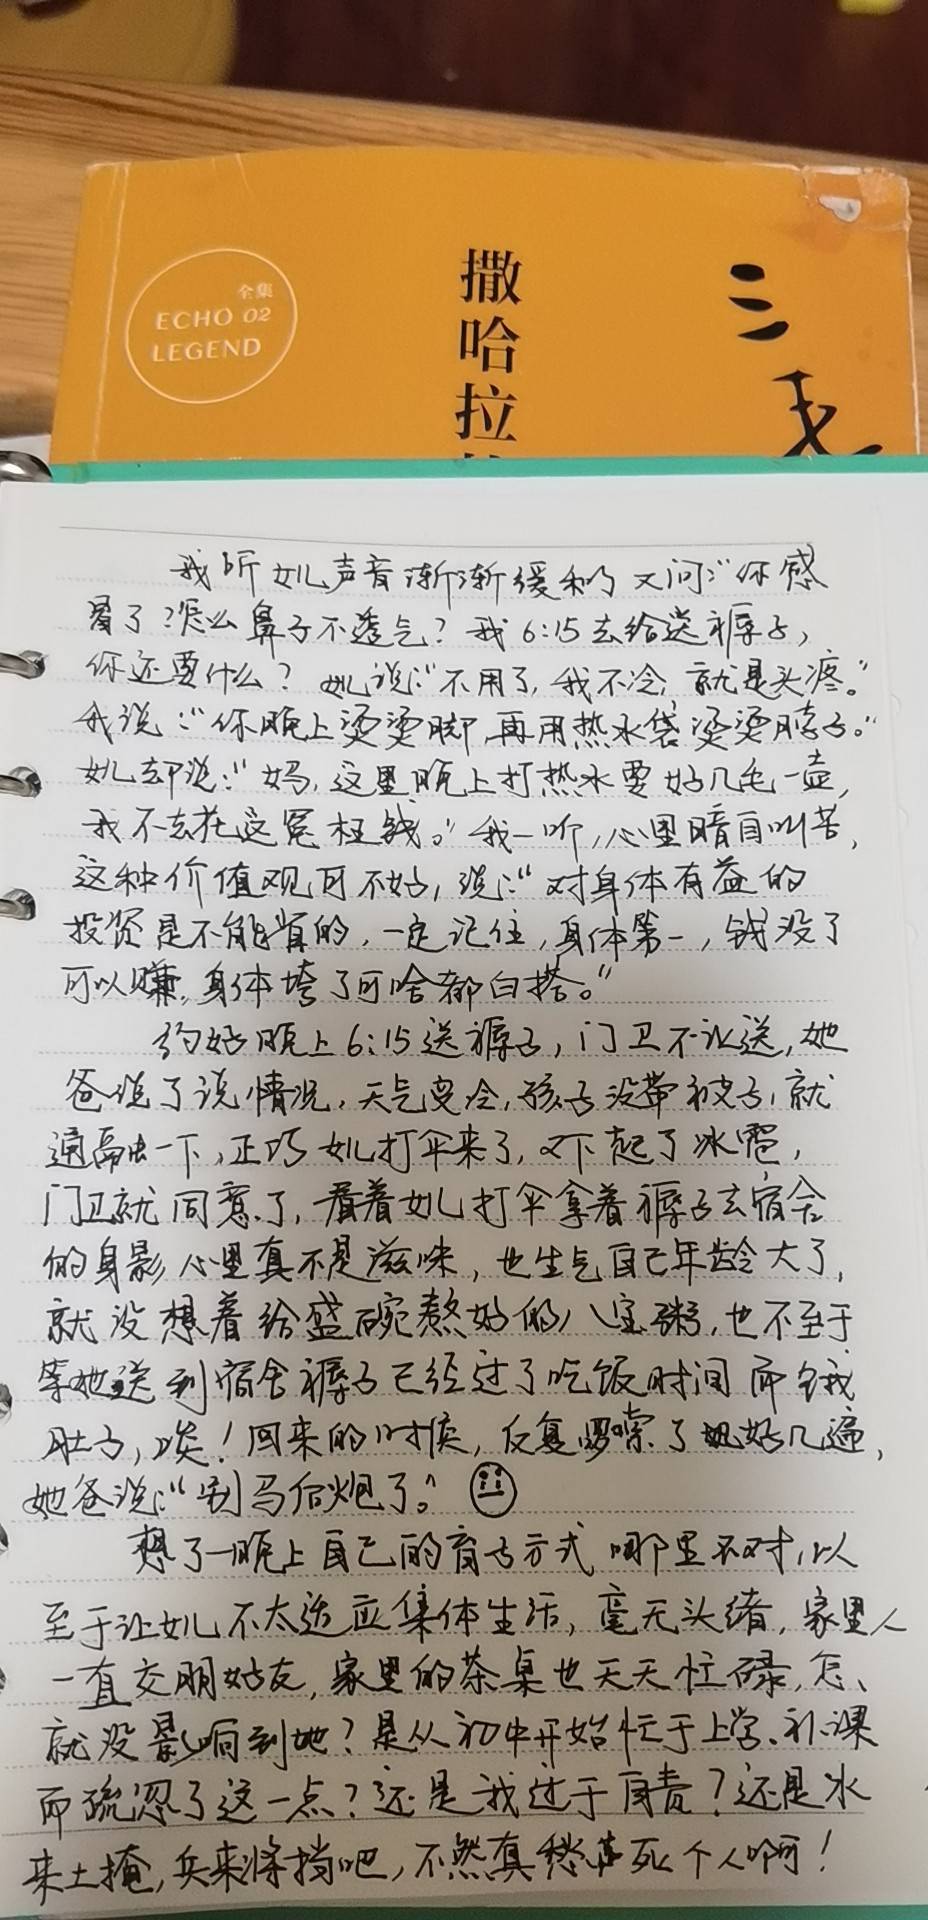 全集
ECHO 02
LEGEND
撒哈拉
三毛
我听女儿声音渐渐缓和了又问:“你感
冒了?怎么鼻子不透气?我6:15去给送褥子,
你还要什么?她说:“不用了,我不冷,就是头疼。”
我说:“你晚上烫烫脚,再用热水袋烫烫脖子。”
女儿却说:“妈,这里晚上打热水要好几毛一壶,
我不去花这冤枉钱。”我一听,心里暗自叫苦,
这种价值观可不好,说:“对身体有益的
投资是不能省的,一定记住,身体第一,钱没了
可以赚,身体垮了可啥都白搭。”
约好晚上6:15送褥子,门卫不让送,她
爸说了说情况,天气变冷,孩子没带被子,就
通融一下,正巧女儿打伞来了,又下起了冰雹,
门卫就同意了,看着女儿打伞拿着褥子去宿舍
的身影心里真不是滋味,也生气自己年龄大了,
就没想着给盛碗熬好的八宝粥,也不至于
等她送到宿舍褥子已经过了吃饭时间而饿
肚子,唉!回来的时候,反复啰嗦了好几遍,
她爸说:“别马后炮了。”
想了一晚上自己的育子方式哪里不对,以
至于让女儿不太适应集体生活,毫无头绪,家里人
一直交朋好友,家里的茶桌也天天忙碌,怎、
就没影响到她?是从初中开始忙于上学、补课
而疏忽了这一点?还是我过于自责?还是水
来土掩,兵来将挡吧,不然真愁死个人啊!